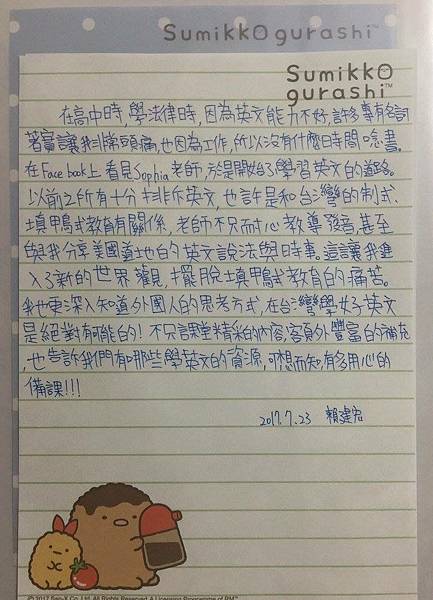 Sumikko gurashi™
Sumikko
gurashi™
在高中時,學法律時,因為英文能力不好,許多專有名詞
著實讓我非常頭痛,也因為工作,所以沒有什麼時間唸書。
在Facebook上看見Sophia老師,於是開始了學習英文的道路。
以前之所有十分排斥英文,也許是和台灣的制式、
填鴨式教育有關係,老師不只耐心教導發音,甚至
與我分享美國道地的英文說法與時事。這讓我進
入了新的世界觀,擺脫填鴨式教育的痛苦。
我也更深入知道外國人的思考方式,在台灣學好英文
是絕對有可能的!不只課堂精彩的內容,額外豐富的補充
,也告訴我們有哪些學英文的資源,可想而知,有多用心的
備課!!!
2017.7.23 賴建宏
© 2017 San-X Co., Ltd. All Rights Reserved.